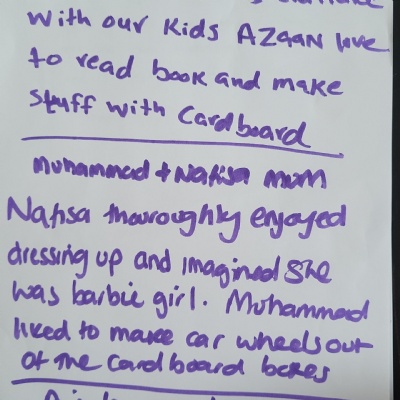 with our kids AZAAN love
to read book and make
stuff with Cardboard
Muhammad + Nafisa mum
Nafisa thouroughly enjoyed
dressing up and imagined she
was barbie girl. Muhammad
liked to make car wheels out
of the cardboard boxes